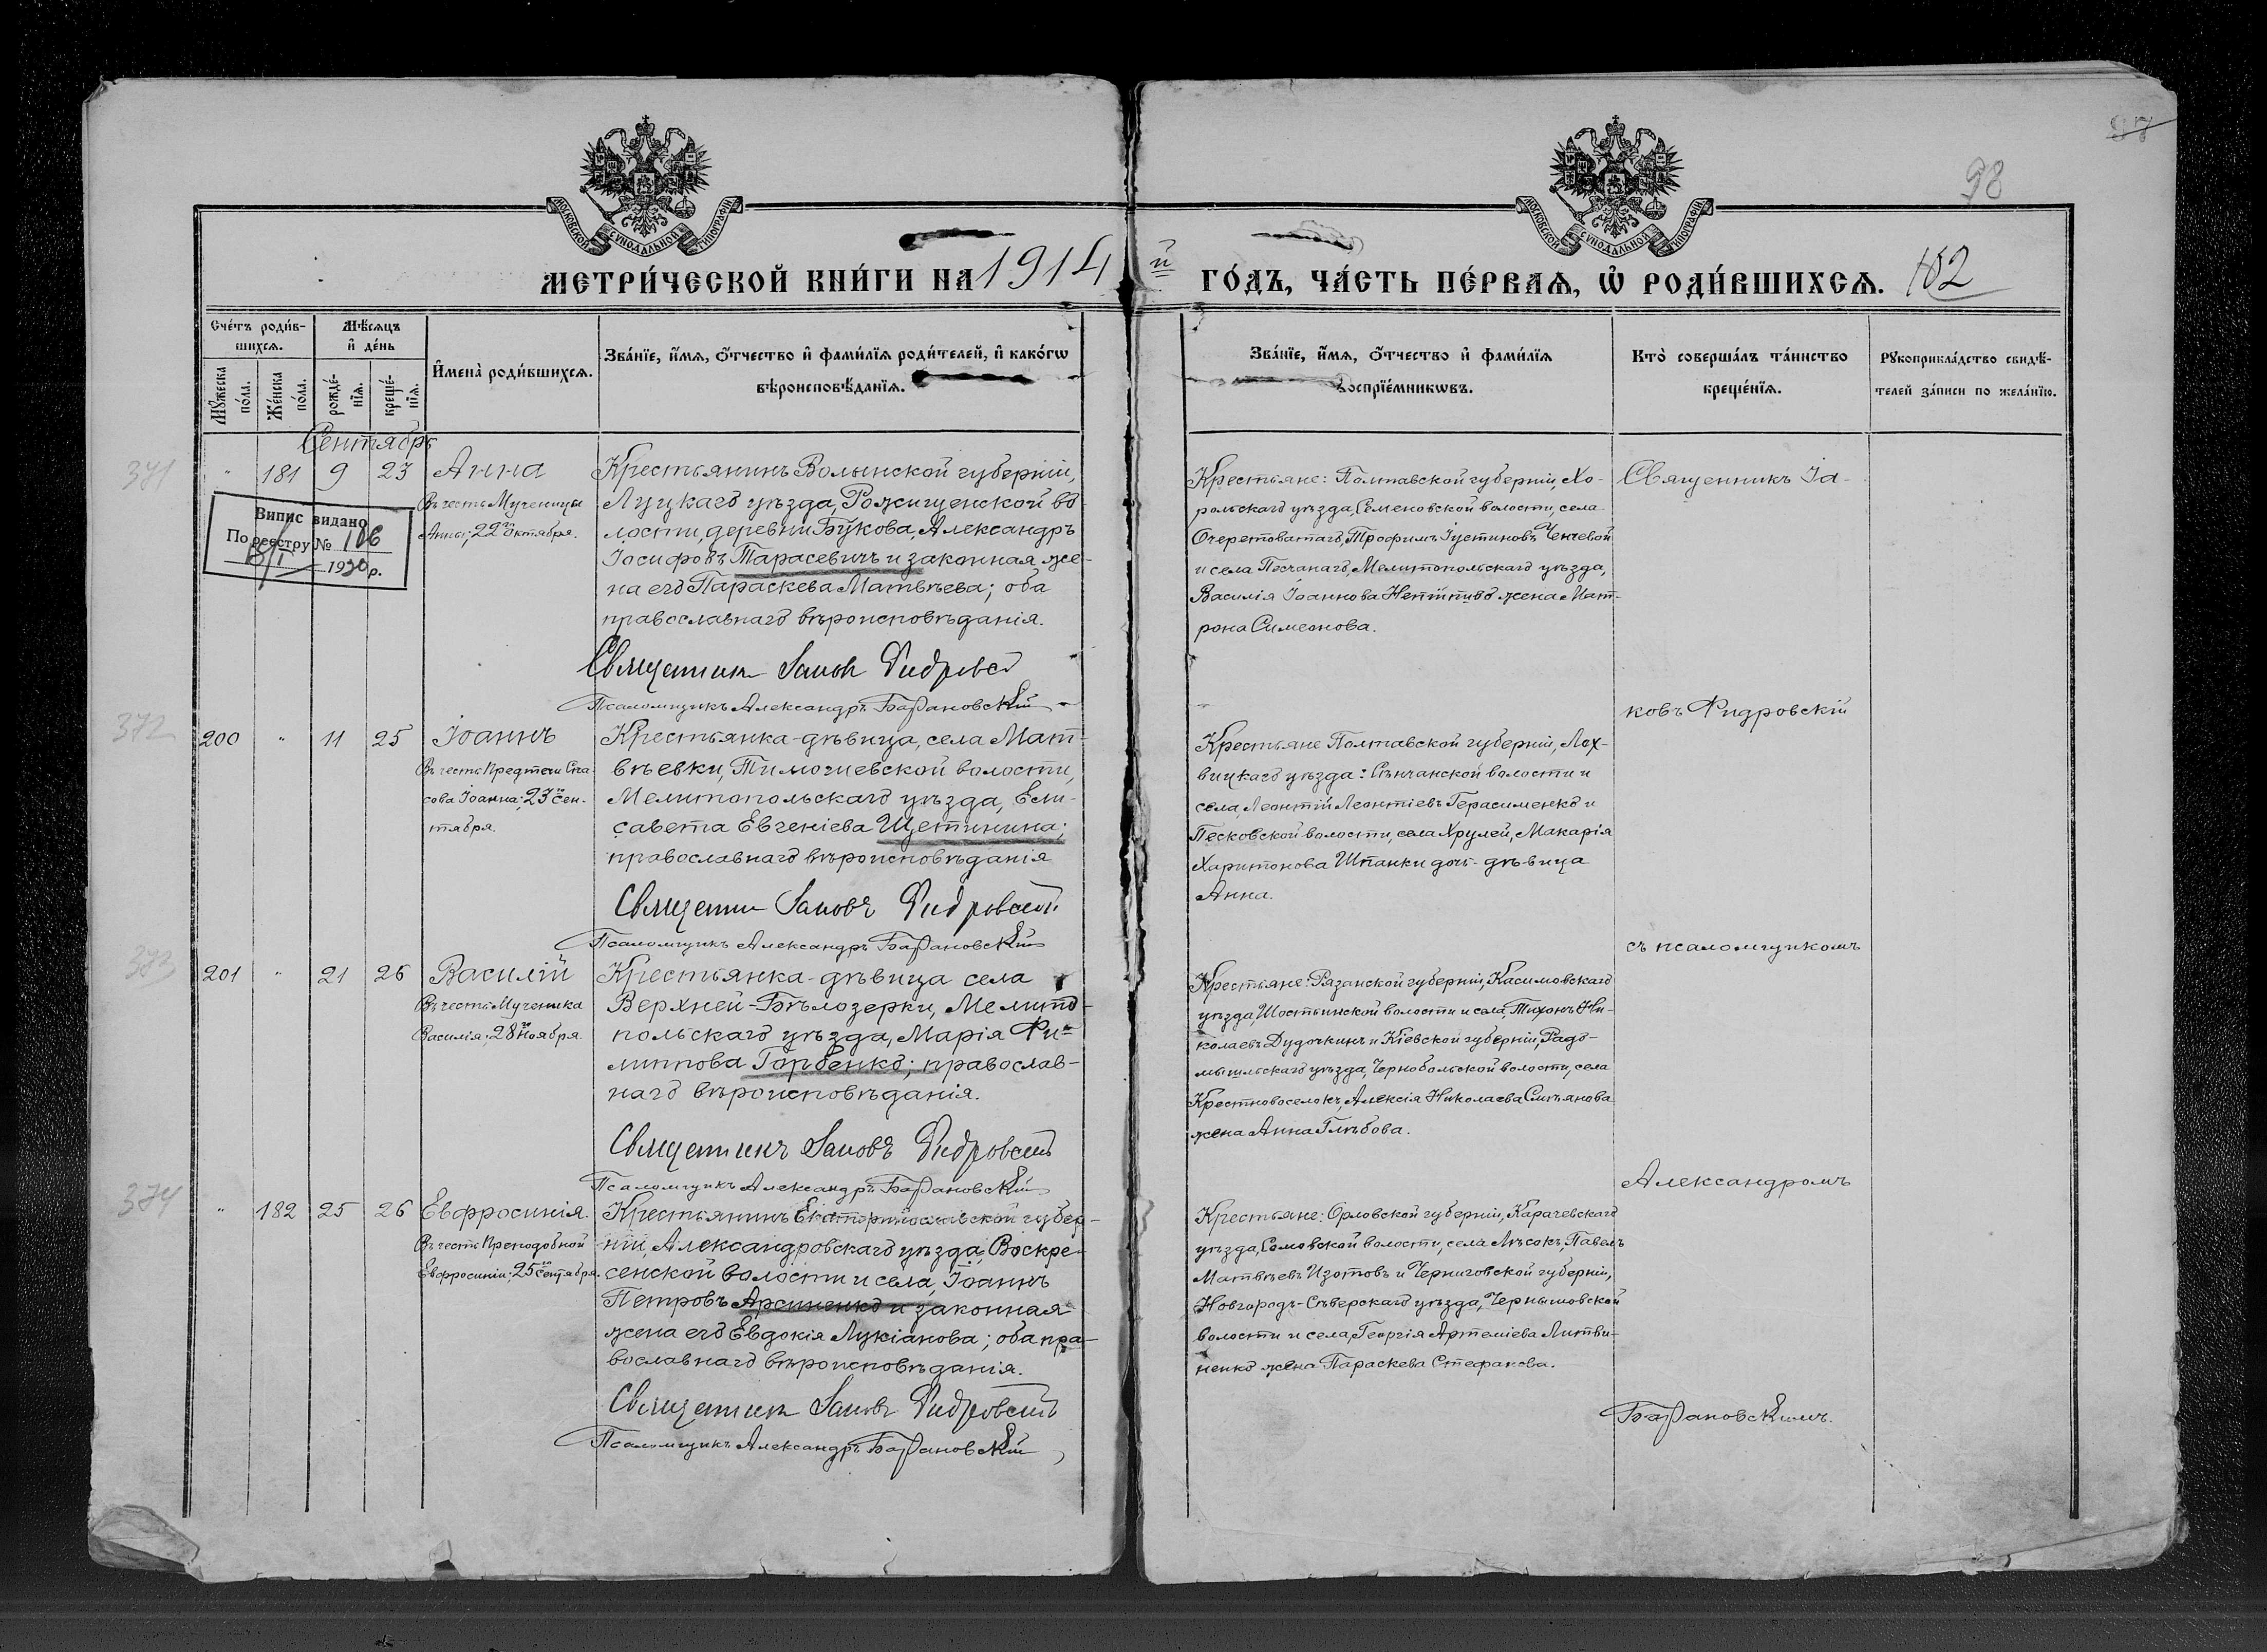 87
98
МОСКОВСКОЙ СѴНОДАЛЬНОЙ ТИПОГРАФІИ
МОСКОВСКОЙ СѴНОДАЛЬНОЙ ТИПОГРАФІИ
МЕТРИ́ЧЕСКОЙ КНИ́ГИ НА 1914 й ГО́ДЪ, ЧА́СТЬ ПЕ́РВАѦ, Ѡ҆ РОДИ́ВШИХСѦ. 102
Сче́тъ роди́в-
шихсѧ.
Мꙋ́жеска по́ла.
Же́нска по́ла.
Мѣ́сѧцъ
и҆ де́нь
рожде́-
нїѧ.
креще́-
нїѧ.
И҆мена̀ роди́вшихсѧ.
Зва́нїе, и҆́мѧ, ѻ҆́тчество и҆ фами́лїѧ роди́телей, и҆ како́гѡ
вѣроисповѣ́данїѧ.
Зва́нїе, и҆́мѧ, ѻ҆́тчество и҆ фами́лїѧ
воспрїе́мникѡвъ.
Кто̀ соверша́лъ та́инство
креще́нїѧ.
Рꙋкоприкла́дство свидѣ́-
телей за́писи по жела́нїю.
Сентябрь
371
" 181 9 23 Анна
Въ честь Мученицы
Анны; 22го Октября.
Випис видано
По реєстру № 106
1930 р.
Крестьянинъ Волынской губерніи,
Луцкаго уѣзда, Рожищенской во-
лости, деревни Букова, Александръ
Іосифовъ Тарасевичъ и законная же-
на его Параскева Матвѣева; оба
православнаго вѣроисповѣданія.
Священник Іаков Фидровс
Псаломщикъ Александръ Барановскій
Крестьяне: Полтавской губерніи, Хо-
рольскаго уѣзда, Семеновской волости, села
Очеретоватаго, Трофимъ Іустиновъ Ченчевой
и села Песчанаго, Мелитопольскаго уѣзда,
Василія Іоаннова жена Мат-
рона Симеонова.
Священникъ Іа-
ковъ Фидровскій
372
200 " 11 25 Іоаннъ
Въ честь Предтечи Спа-
сова Іоанна: 23го Сен-
тября.
Крестьянка-дѣвица, села Мат-
вѣевки, Тимошевской волости,
Мелитопольскаго уѣзда, Ели-
савета Евгеніева Щетинина;
православнаго вѣроисповѣданія
Священник Іаковъ Фидровскій
Псаломщикъ Александръ Барановскій
Крестьяне Полтавской губерніи, Лох-
вицкаго уѣзда: Сѣнчанской волости и
села, Леонтій Леонтіевъ Герасименко и
Песковской волости, села Хрулей, Макарія
Харитонова Шпанки дочь-дѣвица
Анна.
съ псаломщикомъ
373
201 " 21 26 Василій
Въ честь Мученика
Василія; 28го Ноября.
Крестьянка-дѣвица села
Верхней-Бѣлозерки, Мелито-
польскаго уѣзда, Марія Фи-
липпова Горбенко; православ-
наго вѣроисповѣданія.
Священникъ Іаковъ Фидровскій
Псаломщикъ Александръ Барановскій
Крестьяне: Рязанской губерніи, Касимовскаго
уѣзда, Шостьинской волости и села, Тихонъ Ни-
колаевъ Дудочкинъ и Кіевской губерніи, Радо-
мышльскаго уѣзда, Чернобыльской волости, села
Алексія Николаева
жена Анна Глѣбова.
Александромъ
374
" 182 25 26 Евфросинія.
Въ честь Преподобной
Евфросиніи; 25го Сентября.
Крестьянинъ Екатеринославской губер-
ніи, Александровскаго уѣзда, Воскре-
сенской волости и села, Іоаннъ
Петровъ Арсиненко и законная
жена его Евдокія Лукіанова; оба пра-
вославнаго вѣроисповѣданія.
Священник Іаковъ Фидровскій
Псаломщикъ Александръ Барановскій
Крестьяне: Орловской губерніи, Карачевскаго
уѣзда, Сомовской волости, села Лѣсокъ, Павелъ
Матвѣевъ Изотовъ и Черниговской губерніи,
Новгородъ-Сѣверскаго уѣзда, Чернышовской
волости и села, Георгія Артеміева Литви-
ненко жена Параскева Стефанова.
Барановскимъ.